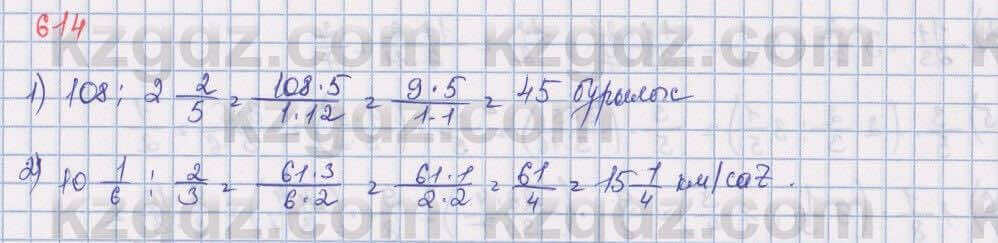 614
kzgdz.com
1) 108 : 2 2/5 = 108·5/1·12 = 9·5/1·1 = 45 бұрылыс
kzgdz.com
2) 10 1/6 : 2/3 = 61·3/6·2 = 61·1/2·2 = 61/4 = 15 1/4 км/сағ.
kzgdz.com